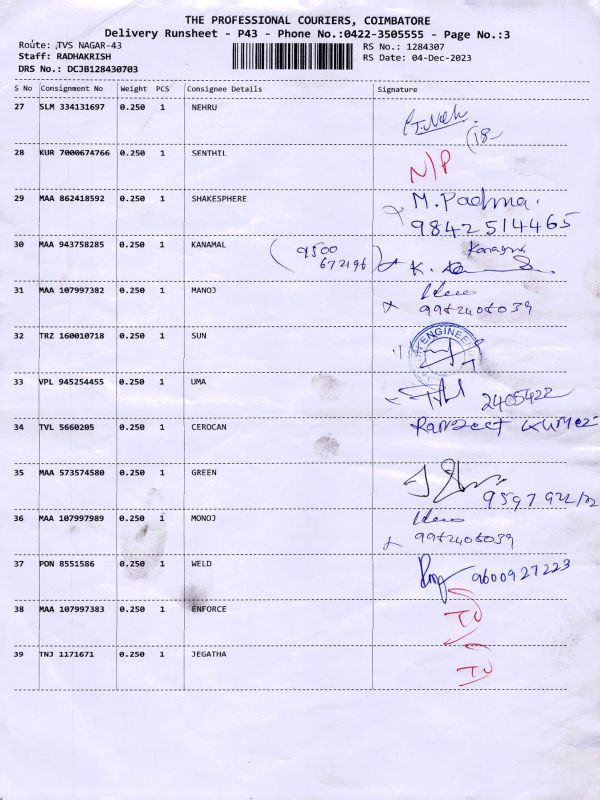 THE PROFESSIONAL COURIERS, COIMBATORE
Delivery Runsheet - P43 - Phone No.:0422-3505555 - Page No.:3
Route: TVS NAGAR-43 RS No.: 1284307
Staff: RADHAKRISH RS Date: 04-Dec-2023
DRS No.: DCJB128430703
S No Consignment No Weight PCS Consignee Details Signature
27 SLM 334131697 0.250 1 NEHRU
18
28 KUR 7000674766 0.250 1 SENTHIL N/P
29 MAA 862418592 0.250 1 SHAKESPHERE M. Padma.
9842514465
30 MAA 943758285 0.250 1 KANAMAL 9500
672196 K.
31 MAA 107997382 0.250 1 MANOJ
9952406039
32 TRZ 160010718 0.250 1 SUN ENGINEER
33 VPL 945254455 0.250 1 UMA 2405422
34 TVL 5660205 0.250 1 CEROCAN Ranjeet Kumer
35 MAA 573574580 0.250 1 GREEN
36 MAA 107997989 0.250 1 MONOJ
9952406039
37 PON 8551586 0.250 1 WELD 9600927223
38 MAA 107997383 0.250 1 ENFORCE
39 TNJ 1171671 0.250 1 JEGATHA